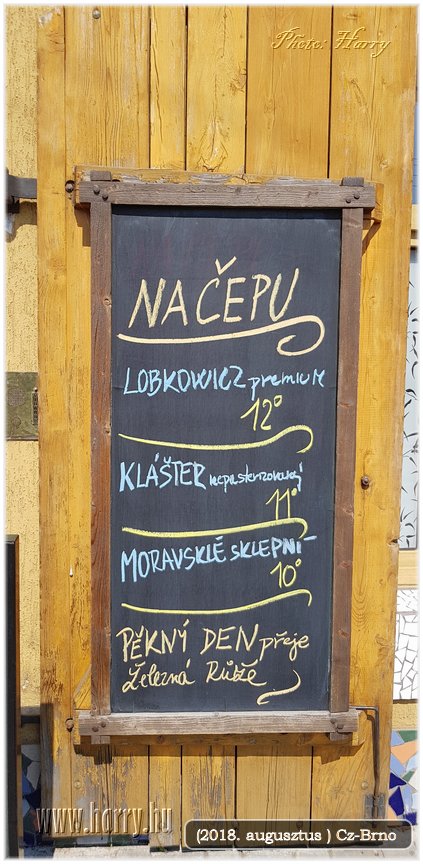 Photo: Harry
NA ČEPU
LOBKOWICZ premium
12°
KLÁŠTER nepasterizovaný
11°
MORAVSKLÉ SKLEPNÍ
10°
PĚKNÝ DEN přeje
Železná Růže
www.horry.hu
(2018. augusztus ) Cz-Brno